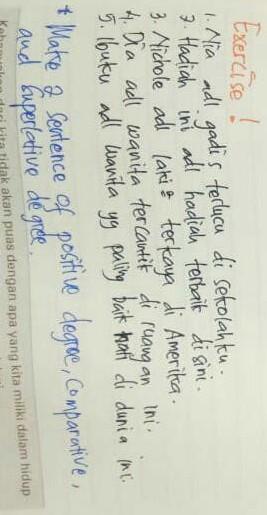 Exercise!
1. Nia adl gadis terlucu di sekolahku.
2. Hadiah ini adl hadiah terbaik disini.
3. Nichole adl laki² terkaya di Amerika.
4. Dia adl wanita tercantik di ruangan ini.
5. Ibuku adl wanita yg paling baik hati di dunia ini.
* Make 2 sentence of positive degree, Comparative,
and Superlative degree.
dari kita tidak akan puas dengan apa yang kita miliki dalam hidup